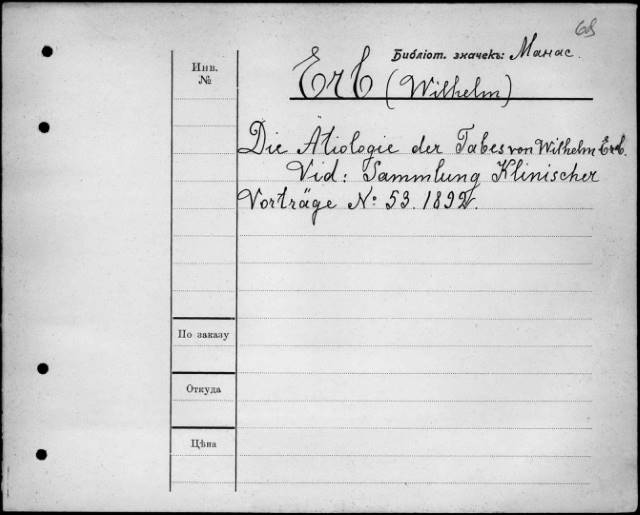 68
Библіот. значекъ: Манас.
Инв.
№
Erb (Wilhelm)
Die Ätiologie der Tabes von Wilhelm Erb.
Vid: Sammlung Klinischer
Vorträge №: 53. 1892.
По заказу
Откуда
Цѣна